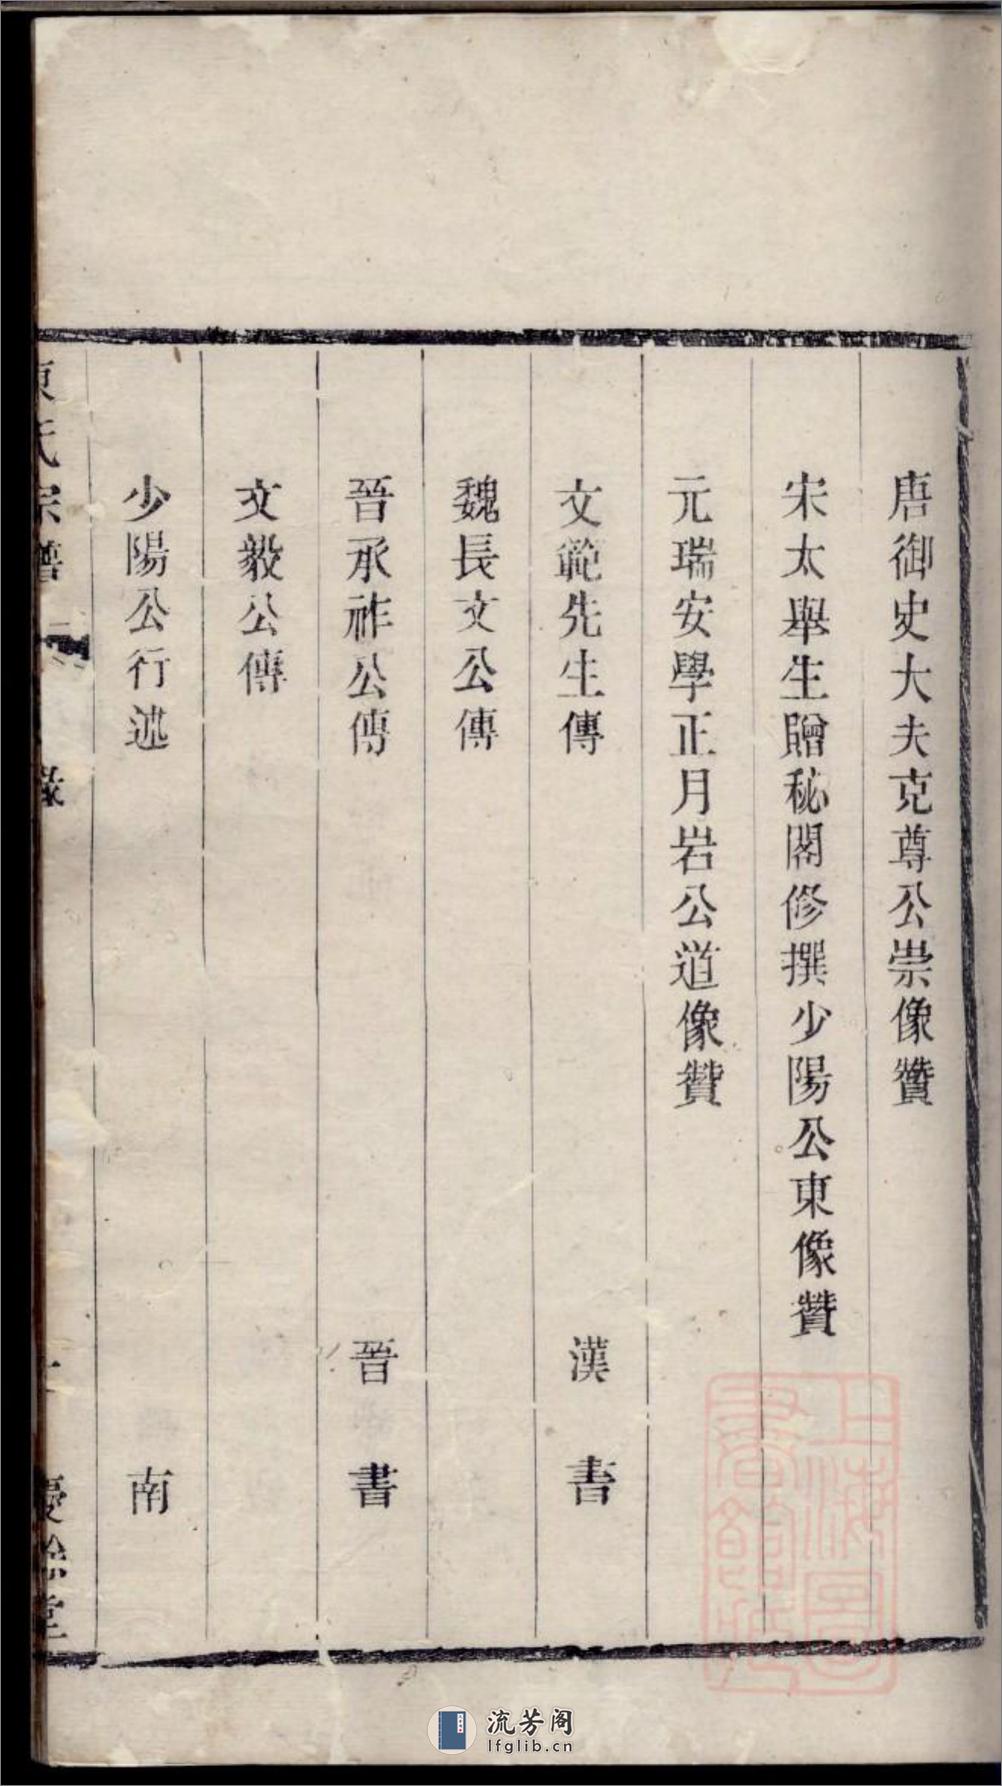 唐御史大夫克尊公崇像贊
宋太學生贈秘閣修撰少陽公東像贊
元瑞安學正月岩公道像贊
文範先生傳 漢書
魏長文公傳
晉承祚公傳 晉書
文毅公傳
少陽公行述 南
陳氏宗譜 錄 慶餘堂
上海圖書館藏
流芳阁
lfglib.cn